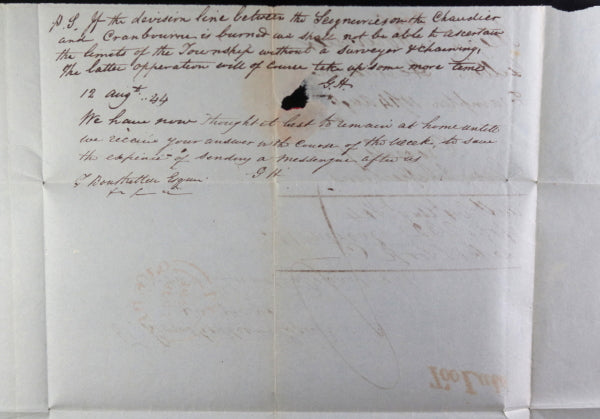 P.S. If the division line between the Seignuries on the Chaudier
and Cranbourne is burned we shall not be able to ascertain
the limits of the Township without a surveyor & chaining,
the latter opperation will of course take up some more time
G.H.
12 augt. 44
We have now thought it best to remain at home untill
we receive your answer in the course of the week, to save
the expence of sending a messenger after us
G H
Esquire
Too Late